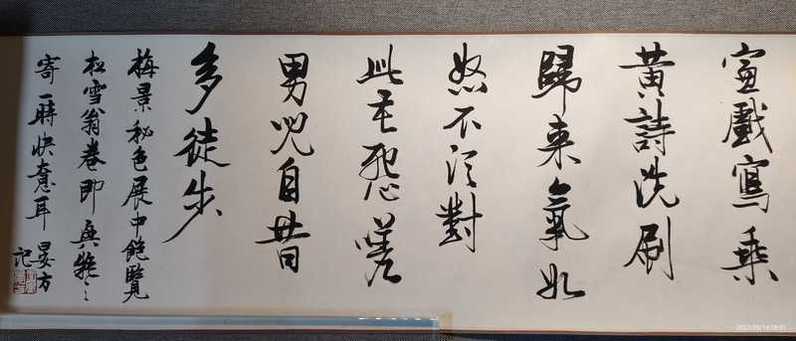 戲寫乘
黃詩洗刷
歸來氣如
怒不須對
此重悲嗟
男兒自昔
多徒步
梅景秘色展中飽覽
松雪翁卷即興
寄一時快意耳 晏方
記